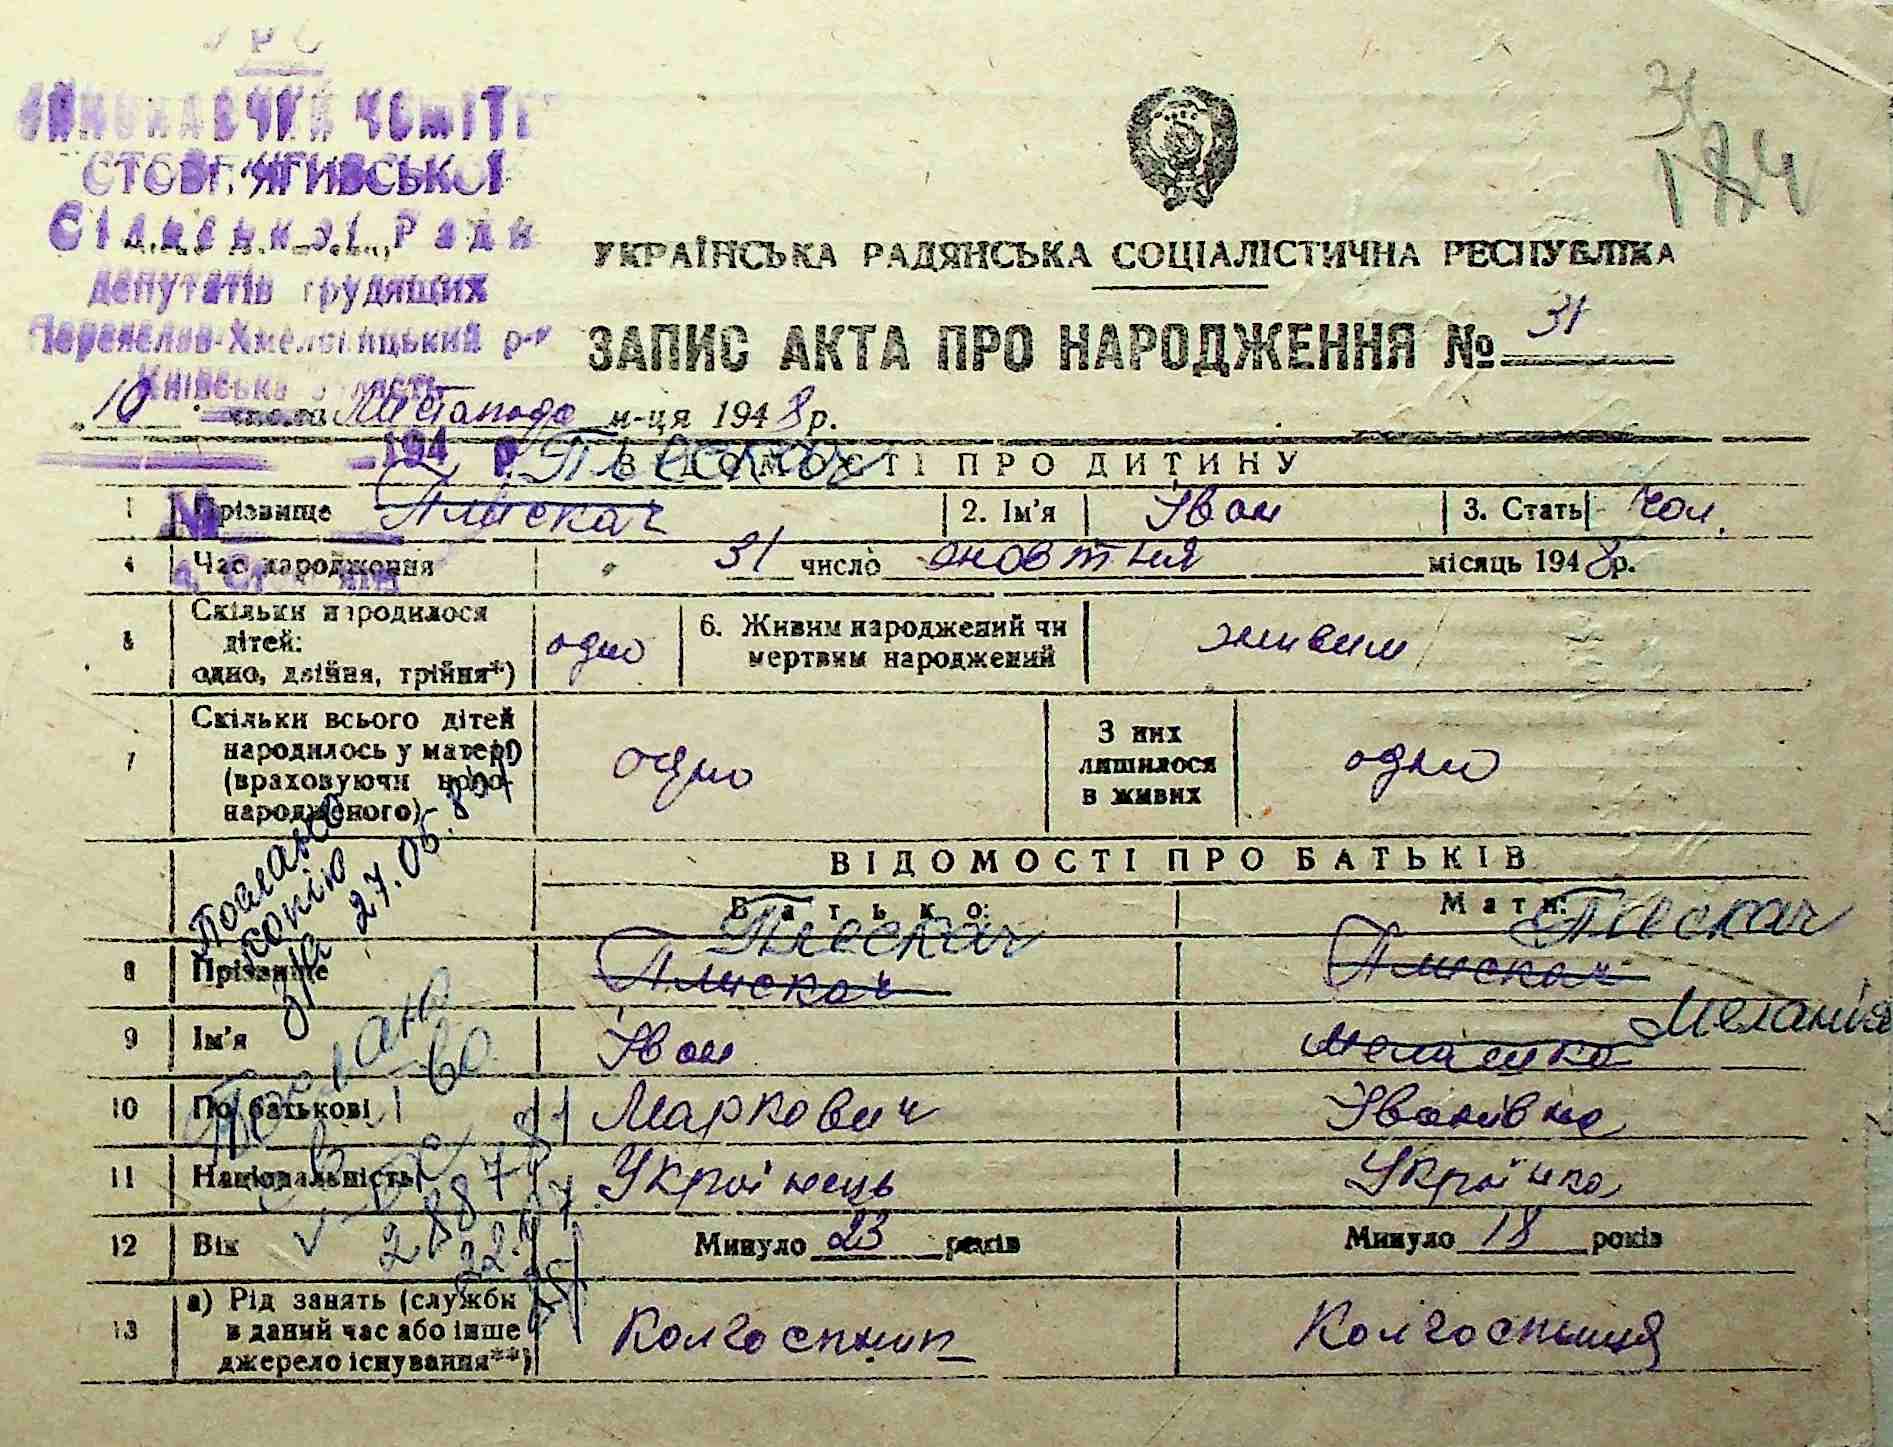 УРСР
ВИКОНАВЧИЙ КОМІТЕТ
СТОВП'ЯГИВСЬКОЇ
Сільської Ради
депутатів трудящих
Переяслав-Хмельницький р-н
Київська область
194 р.
№
31
174
УКРАЇНСЬКА РАДЯНСЬКА СОЦІАЛІСТИЧНА РЕСПУБЛІКА
ЗАПИС АКТА ПРО НАРОДЖЕННЯ № 31
„10" числа Листопада м-ця 1948 р.
ВІДОМОСТІ ПРО ДИТИНУ
Плескач
1 Прізвище Плискач 2. Ім'я Іван 3. Стать Чол.
4 Час народження 31 число жовтня місяць 1948 р.
5 Скільки народилося дітей: одно, двійня, трійня*) одно 6. Живим народжений чи мертвим народжений живим
7 Скільки всього дітей народилось у матері (враховуючи новонародженого) одно З них лишилося в живих одно
ВІДОМОСТІ ПРО БАТЬКІВ
Батько: Мати:
Плескач Плескач
8 Прізвище Плискач Плискач
Меланія
9 Ім'я Іван Мелашка
10 По батькові Маркович Іванівна
11 Національність Українець Українка
12 Вік Минуло 23 років Минуло 18 років
13 а) Рід занять (служби в даний час або інше джерело існування**) Колгоспник Колгоспниця
Послано
копію
27.05.